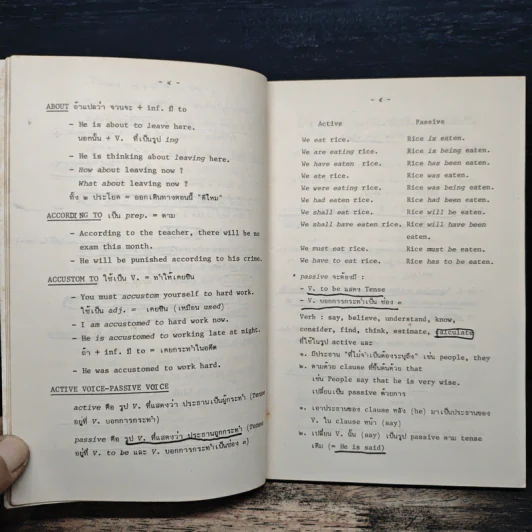 - ๔ -
ABOUT ถ้าแปลว่า จวนจะ + inf. มี to
- He is about to leave here.
นอกนั้น + V. ที่เป็นรูป ing
- He is thinking about leaving here.
- How about leaving now ?
What about leaving now ?
ทั้ง ๒ ประโยค = ออกเดินทางตอนนี้ "ดีไหม"
ACCORDING TO เป็น prep. = ตาม
- According to the teacher, there will be no
exam this month.
- He will be punished according to his crime.
ACCUSTOM TO ใช้เป็น V. = ทำให้เคยชิน
- You must accustom yourself to hard work.
ใช้เป็น adj. = เคยชิน (เหมือน used)
- I am accustomed to hard work now.
- He is accustomed to working late at night.
ถ้า + inf. มี to = เคยกระทำในอดีต
- He was accustomed to hard work.
ACTIVE VOICE-PASSIVE VOICE
active คือ รูป V. ที่แสดงว่า ประธานเป็นผู้กระทำ (Tense
อยู่ที่ V. บอกการกระทำ)
passive คือ รูป V. ที่แสดงว่า ประธานถูกกระทำ (Tense
อยู่ที่ V. to be และ V. บอกการกระทำเป็นช่อง ๓)
- ๕ -
Active Passive
We eat rice. Rice is eaten.
We are eating rice. Rice is being eaten.
We have eaten rice. Rice has been eaten.
We ate rice. Rice was eaten.
We were eating rice. Rice was being eaten.
We had eaten rice. Rice had been eaten.
We shall eat rice. Rice will be eaten.
We shall have eaten rice. Rice will have been
eaten.
We must eat rice. Rice must be eaten.
We have to eat rice. Rice has to be eaten.
* passive จะต้องมี :
- V. to be แสดง Tense
- V. บอกการกระทำเป็น ช่อง ๓
Verb : say, believe, understand, know,
consider, find, think, estimate, calculate
ที่ใช้ในรูป active และ
๑. มีประธาน "ที่ไม่จำเป็นต้องระบุถึง" เช่น people, they
๒. ตามด้วย clause ที่ขึ้นต้นด้วย that
เช่น People say that he is very wise.
เปลี่ยนเป็น passive ด้วยการ
๑. เอาประธานของ clause หลัง (he) มาเป็นประธานของ
V. ใน clause หน้า (say)
๒. เปลี่ยน V. นั้น (say) เป็นรูป passive ตาม tense
เดิม (= He is said)